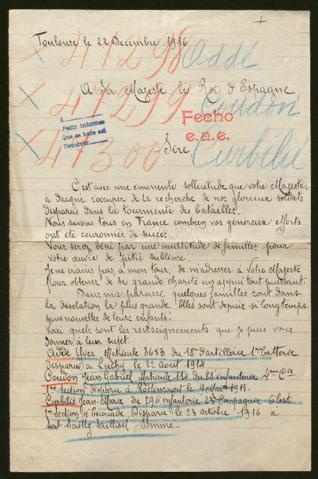 Toulouse le 22 Decembre 1916
41298 Addé
A Sa Majesté le Roi d'Espagne
41299 Coudon
A
Pedir informes
Que se hace así
Fecho
e.a.e.
41300 Curbilié
Sire
C'est avec une éminente sollicitude que votre Majesté
a daigné s'occuper de la recherche de nos glorieux soldats
disparus dans la tourmente des batailles.
Nous savons tous en France combien vos généreux efforts
ont été couronnés de succès.
Vous serez béni par une multitude de familles pour
votre œuvre de pitié sublime.
Je viens à mon tour, de m'adresser à Votre Majesté
pour obtenir de sa grande charité un appui tout puissant.
Dans ma paroisse quelques familles sont dans
la désolation la plus grande. Elles sont depuis si longtemps
sans nouvelles de leurs enfants.
Voici quels sont les renseignements que je puis vous
donner à leur sujet.
Addé Yves Matricule 3653 du 18e d'artillerie 1ère batterie
Disparu à Luchy le 22 août 1914
Coudon Jean Gabriel Matricule 114 du 88 infanterie 4me Cie
1ère section à Roclincourt le 1915.
Curbilié Jean-Marie du 296 infanterie 23 Compagnie
1ère section Escouade Disparu le 23 octobre 1916 à
Sailly Saillisel Somme